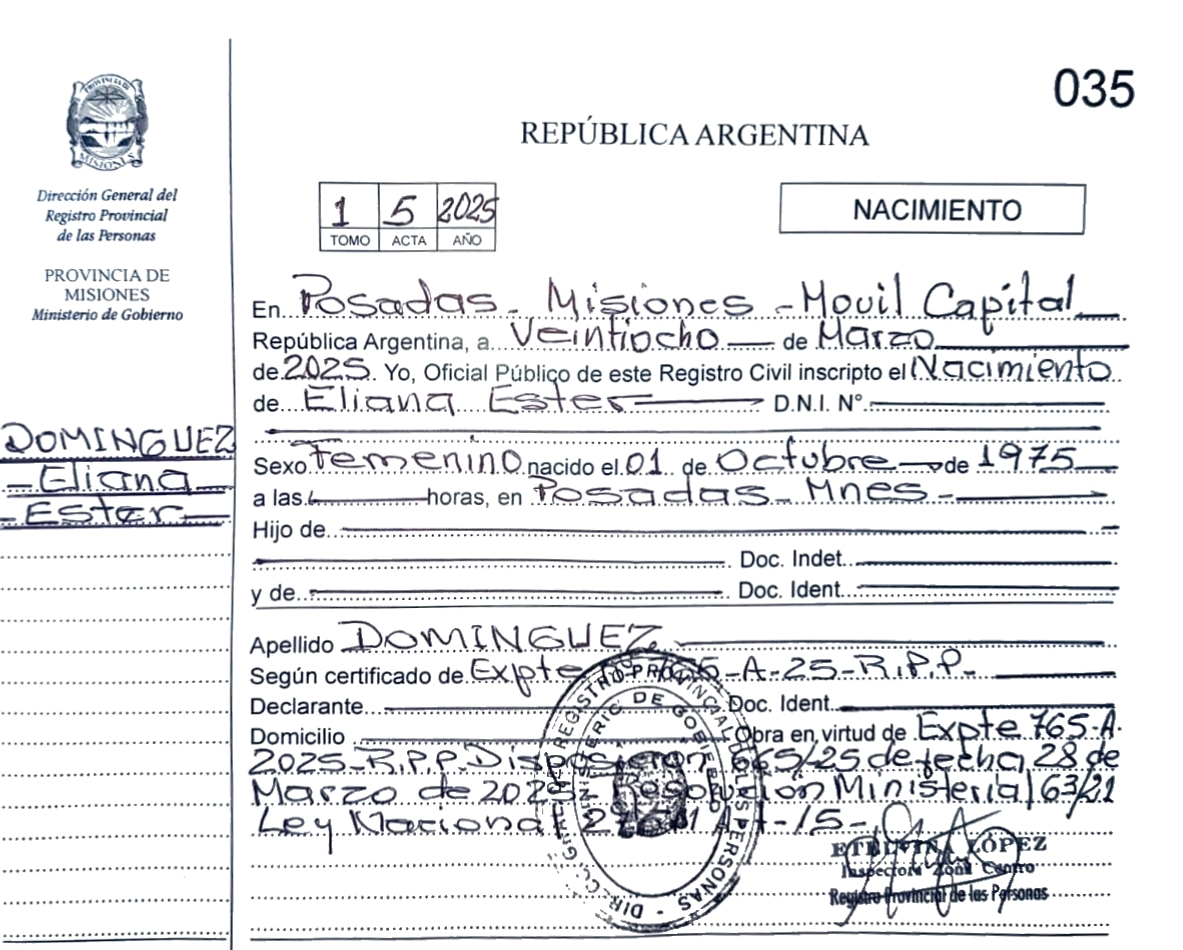 035
REPÚBLICA ARGENTINA
PROVINCIA DE
MISIONES
Dirección General del
Registro Provincial
de las Personas
PROVINCIA DE
MISIONES
Ministerio de Gobierno
DOMINGUEZ
Eliana
Ester
1 5 2025
TOMO ACTA AÑO
NACIMIENTO
En Posadas - Misiones - Movil Capital
República Argentina, a Veintiocho de Marzo
de 2025. Yo, Oficial Público de este Registro Civil inscripto el Nacimiento
de Eliana Ester D.N.I. N°
Sexo Femenino nacido el 01 de Octubre de 1975
a las horas, en Posadas - Mnes -
Hijo de
Doc. Indet.
y de Doc. Ident.
Apellido DOMINGUEZ
Según certificado de Expte -A-25-R.P.P.-
Declarante Doc. Ident.
Domicilio Obra en virtud de Expte 765-A-
2025-R.P.P. Disposicion 665/25 de fecha 28 de
Marzo de 2025- Resolución Ministerial 63/21
Ley Nacional
DIR. GRAL. DE REGISTRO PROVINCIAL DE LAS PERSONAS
MINISTERIO DE GOBIERNO
ETELVINA LÓPEZ
Inspectora Zona Centro
Registro Provincial de las Personas